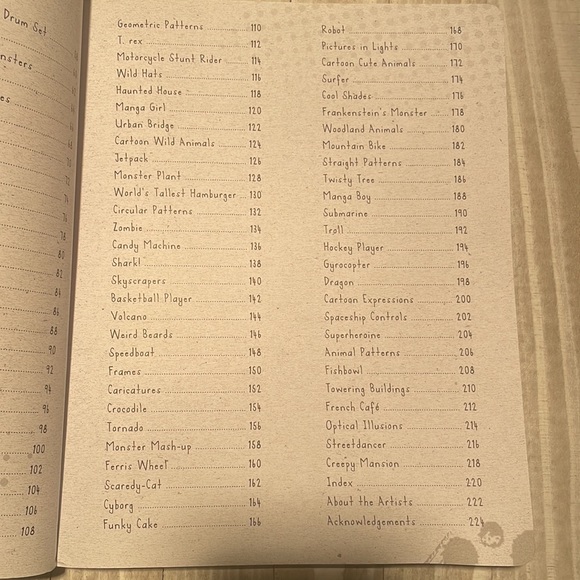 Drum Set
nsters
es
78
80
82
84
86
88
90
92
94
96
98
100
102
104
106
108
Geometric Patterns 110
T. rex 112
Motorcycle Stunt Rider 114
Wild Hats 116
Haunted House 118
Manga Girl 120
Urban Bridge 122
Cartoon Wild Animals 124
Jetpack 126
Monster Plant 128
World's Tallest Hamburger 130
Circular Patterns 132
Zombie 134
Candy Machine 136
Shark! 138
Skyscrapers 140
Basketball Player 142
Volcano 144
Weird Beards 146
Speedboat 148
Frames 150
Caricatures 152
Crocodile 154
Tornado 156
Monster Mash-up 158
Ferris Wheel 160
Scaredy-Cat 162
Cyborg 164
Funky Cake 166
Robot 168
Pictures in Lights 170
Cartoon Cute Animals 172
Surfer 174
Cool Shades 176
Frankenstein's Monster 178
Woodland Animals 180
Mountain Bike 182
Straight Patterns 184
Twisty Tree 186
Manga Boy 188
Submarine 190
Troll 192
Hockey Player 194
Gyrocopter 196
Dragon 198
Cartoon Expressions 200
Spaceship Controls 202
Superheroine 204
Animal Patterns 206
Fishbowl 208
Towering Buildings 210
French Café 212
Optical Illusions 214
Streetdancer 216
Creepy Mansion 218
Index 220
About the Artists 222
Acknowledgements 224